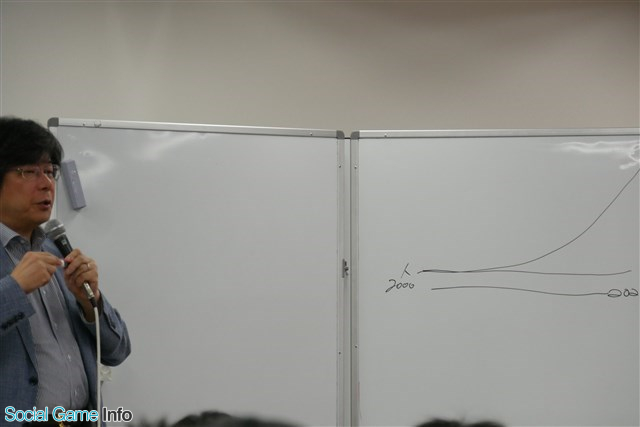 人
2000 202
Social Game Info